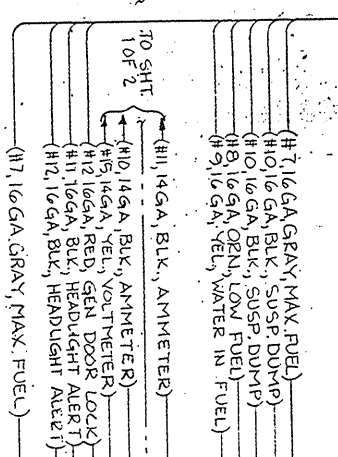 (#7, 16 GA, GRAY, MAX. FUEL)
(#10, 16 GA, BLK., SUSP. DUMP)
(#10, 16 GA, BLK., SUSP. DUMP)
(#8, 16 GA, ORN, LOW FUEL)
(#9, 16 GA, YEL, WATER IN FUEL)
(#11, 14 GA, BLK., AMMETER)
TO SHT.
1 OF 2
(#10, 14 GA, BLK., AMMETER)
(#15, 14 GA, YEL., VOLTMETER)
(#12 16 GA, RED, GEN DOOR LOCK)
(#11, 16 GA, BLK., HEADLIGHT ALERT)
(#12, 16 GA, BLK., HEADLIGHT ALERT)
(#7, 16 GA. GRAY, MAX. FUEL)